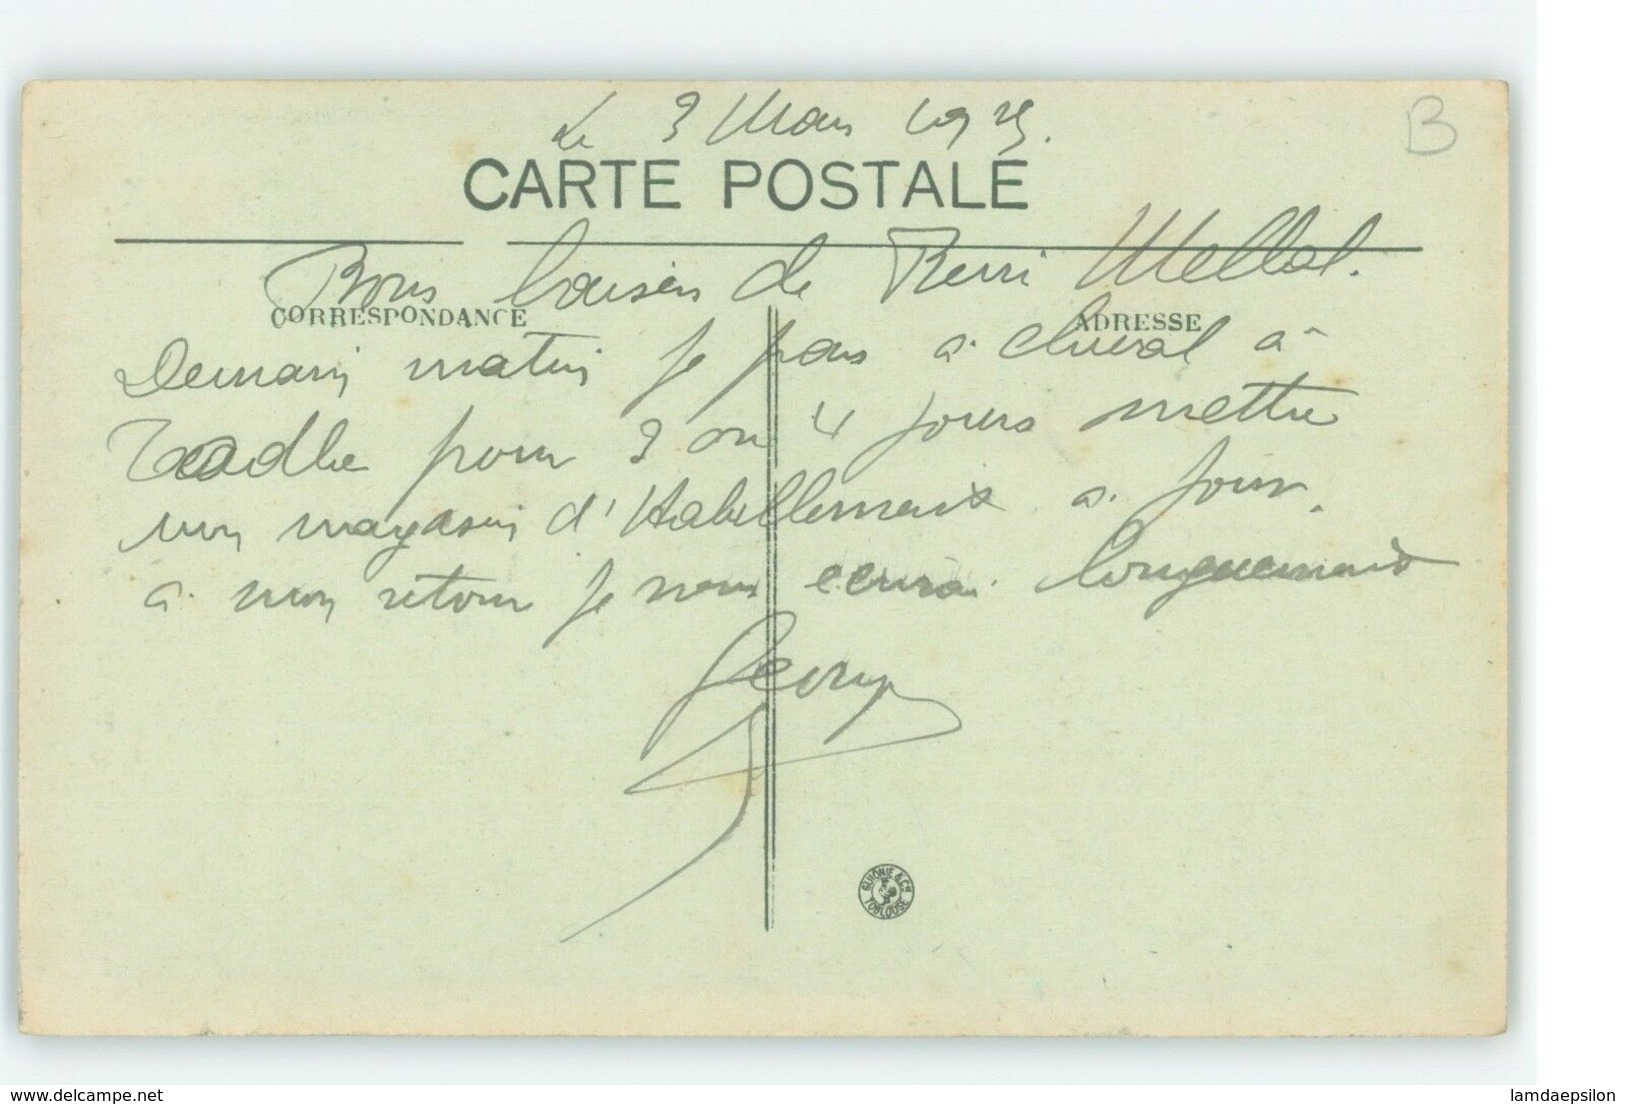 Le 3 Mars 1925.
B
CARTE POSTALE
Bons baisers de Beni Mellal.
CORRESPONDANCE
ADRESSE
Demain matin je pars à cheval à
Tadla pour 3 ou 4 jours mettre
mon magasin d'Habillement à jour.
à mon retour je vous ecrirai longuement
Georges
GUIONIE & Cie TOULOUSE
delcampe.net
lamdaepsilon